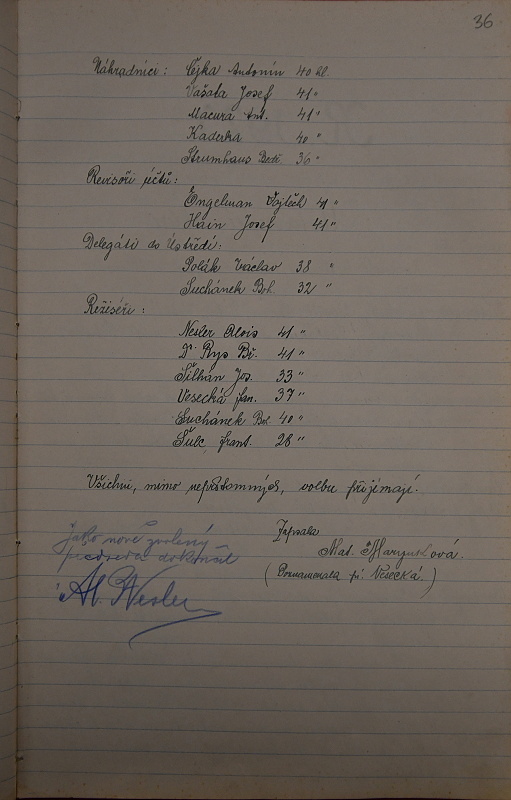 36
Náhradníci: Čejka Antonín 40 hl.
Vašata Josef 41 "
Macura Ant. 41 "
Kaderka 40 "
Strumhaus Bedř. 36 "
Revisoři účtů:
Engelman Vojtěch 41 "
Hain Josef 41 "
Delegáti do Ústředí:
Polák Václav 38 "
Suchánek Boh. 32 "
Režiséři:
Nesler Alois 41 "
Dr. Rys Bř. 41 "
Šilhán Jos. 33 "
Vesecká Jan. 37 "
Suchánek Boh. 40 "
Šulc frant. 28 "
Všichni, mimo nepřítomných, volbu přijímají.
Zapsala
Jako nově zvolený
Mat. Marynková.
předseda
(Poznamenala pí. Vesecká.)
Al. Nesler